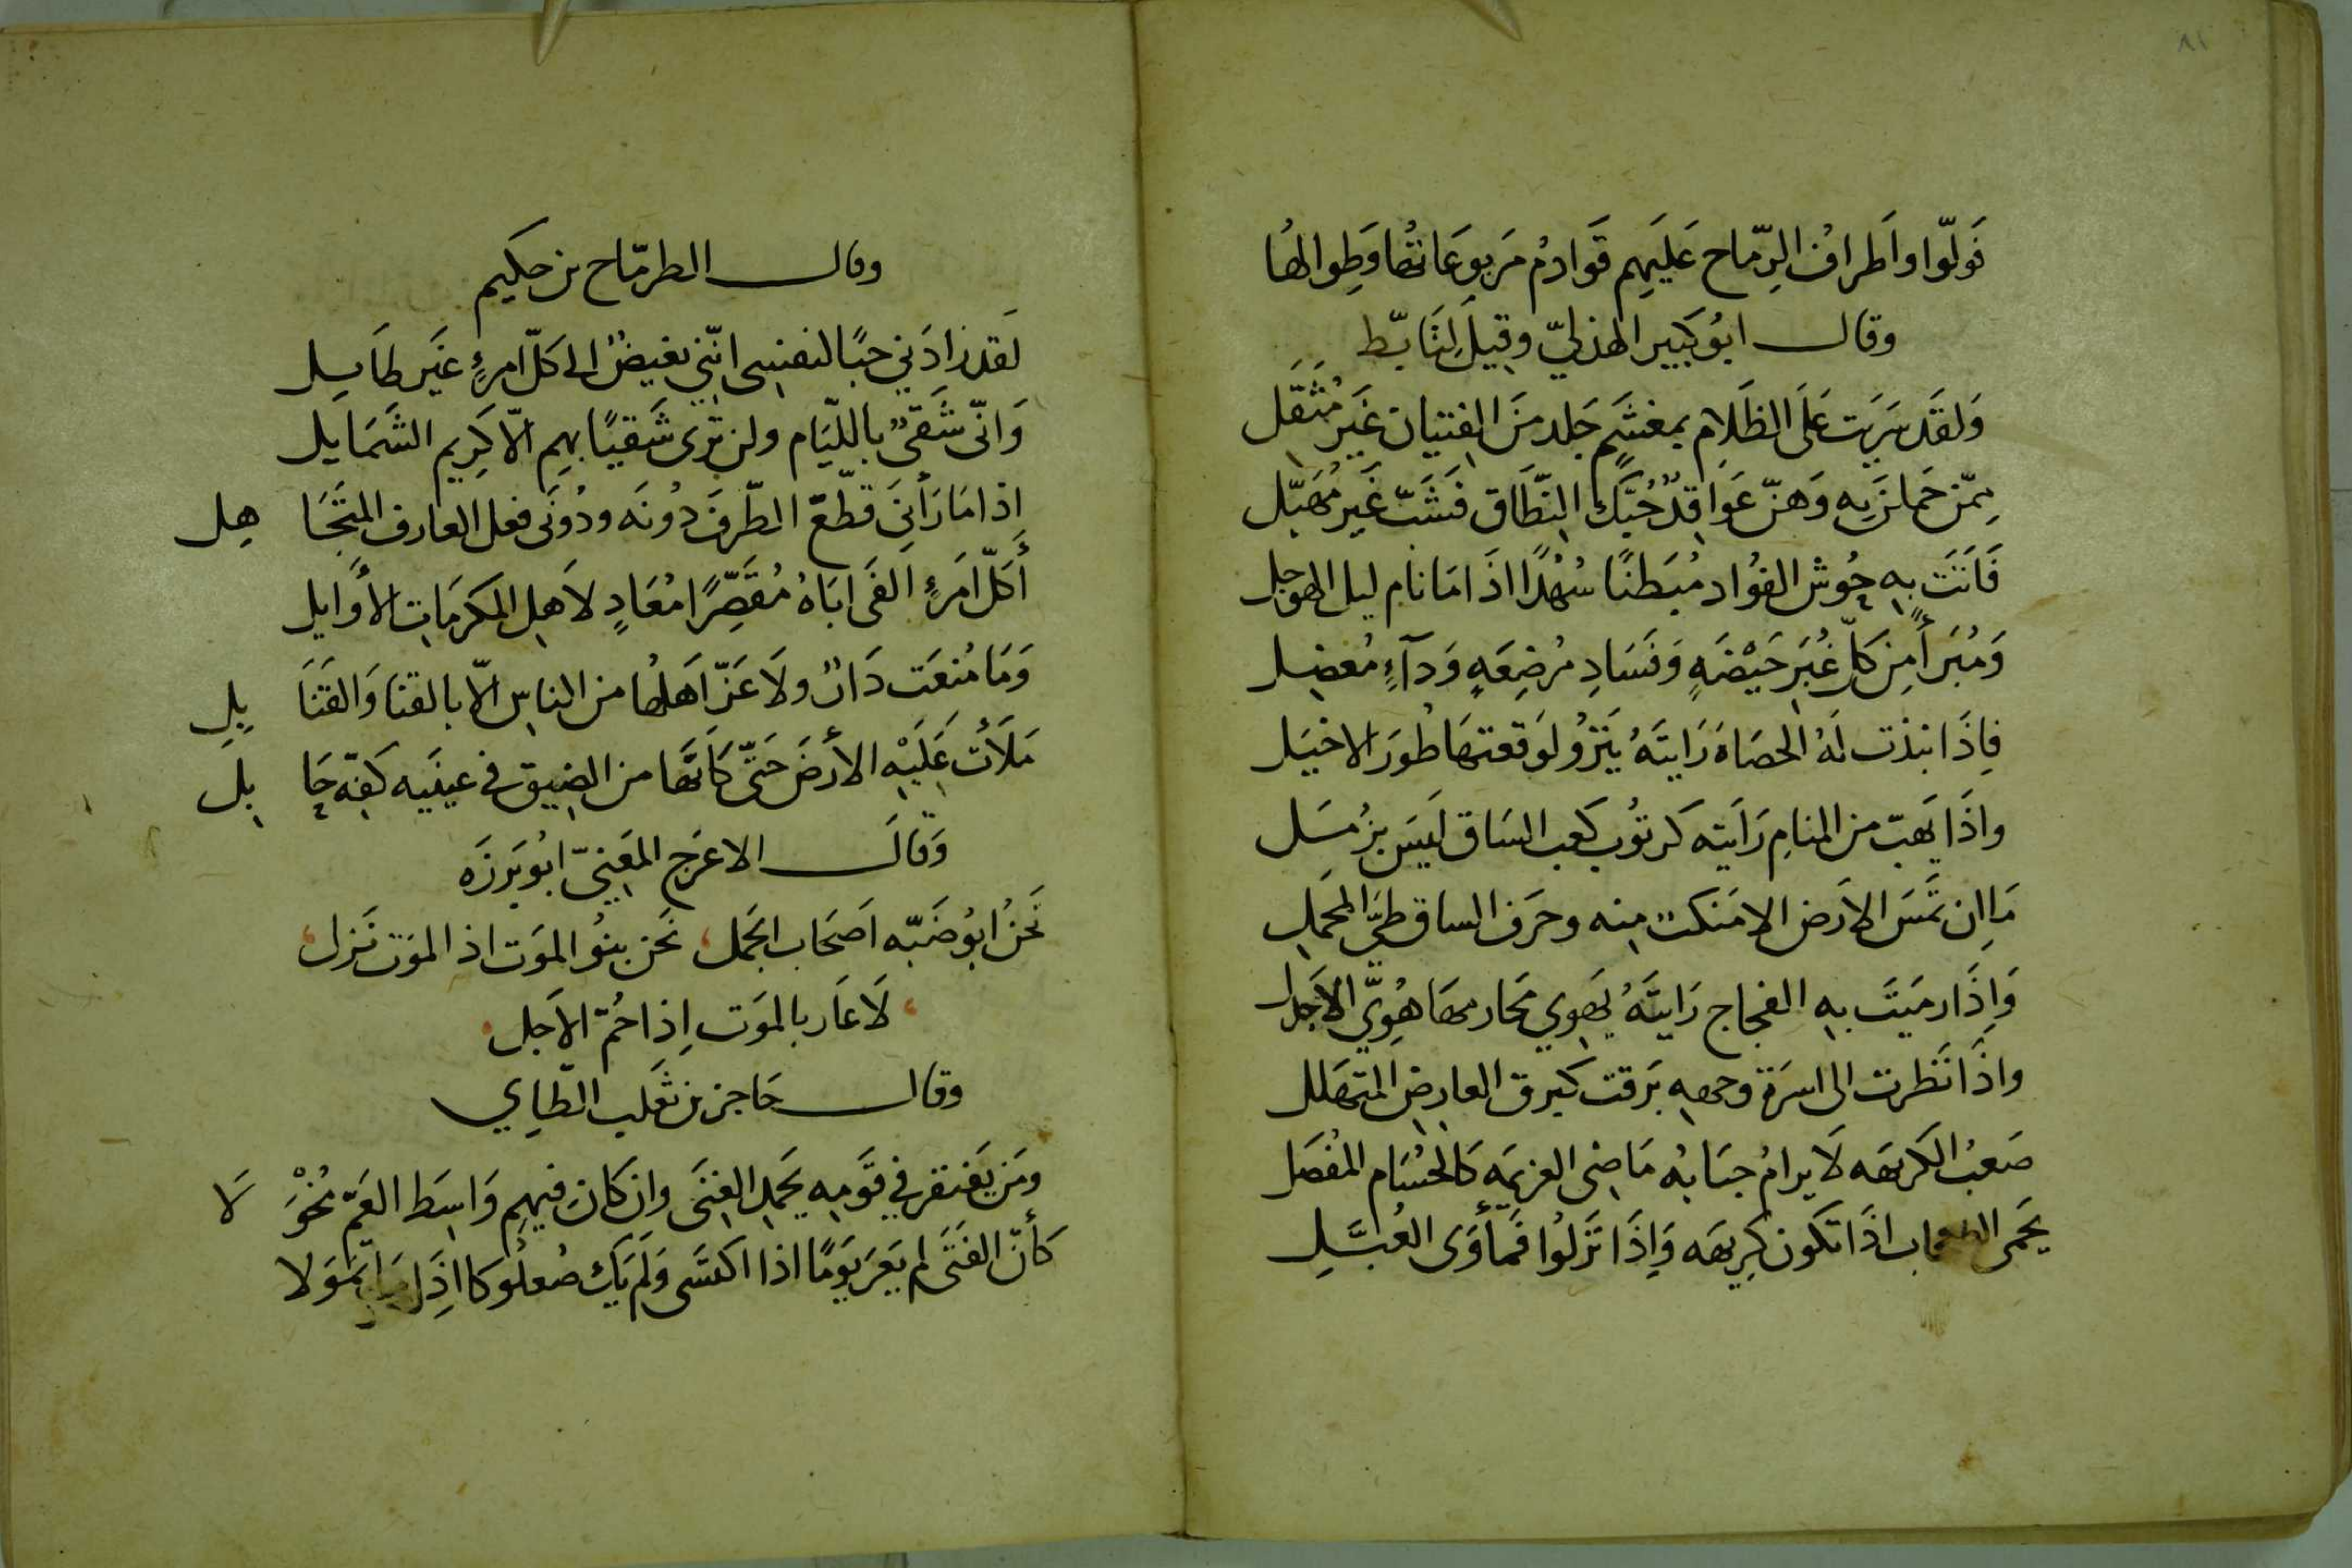 ٨١
فَولّوا واَطرافُ الرِّماح عَلَيهِم قَوَادمُ مَربوعَاتُها وَطِوالهُا
وقال ابُو كَبِير الهذليّ وقِيلَ لِتَابّط
وَلقَد سَرَيت عَلَى الظَلامِ بمغشَمٍ جَلد منَ الفتيان غَير مُثَقّل
مِمّن حَملنَ بِه وَهنّ عَواقِدٌ حُبُكَ النّطَاق فَشَبّ غَيرَ مُهَبّل
فَاَتَت بِه حُوش الفؤاد مُبَطنًا سُهُدًا اذَا مَا نام ليل الهوجل
وَمُبَرأً مِن كلّ غُبَر حَيْضَهٍ وَفَسَادِ مُرضِعَهٍ وَدآءٍ مُعضِل
فِاذَا نبذت لَهُ الحصَاة رَايتَهُ يَنَزُو لوَقعتهَا طُورَ الاخيَل
واذَا يَهبّ من المنامِ رَايَته كرتوُبِ كعب السَاق ليَس بزُمّل
مَا ان يَمَسّ الاَرض الا مَنكبٌ مِنه وحَرف الساق طيّ المحمَلِ
وَاِذَا رميَتَ بِه الفجاج رَايتَهُ يَهوِي مَحَارمهَا هُوِيّ الاَجدل
واذَا نَظرت الى اسرَة وجهِه بَرقت كبرق العارِض المتهَلل
صَعبُ الكَريهَه لَا يرامُ جنَابُه مَاضِى العزيمَه كَالحُسَام المُفصَل
يَحمِى الصحاب اذَا تكون كِريهَه وَاِذَا نَزَلُوا فَمَأوَى العُيّلِ
وقال الطرمّاح بن حكيم
لَقد زادَنِي حبًا لنفسِى انّنِي بغيضٌ الى كلّ امرئٍ غَير طَايِل
وَانّى شَقيٌّ باللّيَام ولن تَرى شَقيًا بهِم الّا كَرِيم الشَمَايل
اذا مَا رَأنِى قَطّعَ الطّرفَ دُونَه ودُونَى فعل العارف المتجَاهِل
أَكلّ امَرئٍ الفَى ابَاهُ مُقَصِّرًا مُعَادٍ لاَهلِ المكرمَات الأوَايل
وَمَا مُنعَت دَارٌ ولَا عَزّ اَهلهَا من الناس الّا بالقنا وَالقنَابِلِ
مَلأتُ عَلَيْهِ الأرضَ حَتّى كَاَنّهَا من الضِيق فى عينَيه كفّه حَابِل
وَقالَ الاعرَج المَعنِيّ ابُو بَرزَه
نَحنُ ابُو ضَبّه اَصحَاب الجَمل نَحن بنوُ الموَت اذ الموَت نَزل
لَا عَار بالموَت اِذا حُمّ الاَجل
وقال حَاجز بن ثعَلب الطّايِي
ومَن يَفتقر فِي قَومِه يَحمدِ الغِنَى وان كَان فيهِم وَاسِط العَمّ مُخْوَلَا
كأنّ الفَتَى لم يَعرَ يَومًا اذا اكتسَى وَلَم يَك صُعلُوكا اذَِا مَا تموّلا